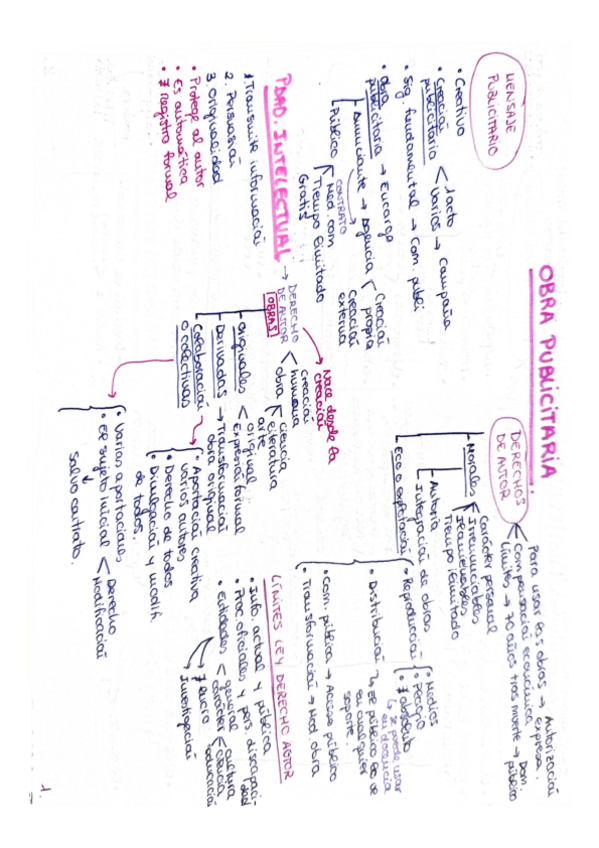 OBRA PUBLICITARIA.
MENSAJE
PUBLICITARIO
• Creativo
• Creación publicitaria < 1 acto
Varios → Campaña
• Sig. fundamental → Com. publi
• obra publicitaria → Encargo
Anunciante → Agencia < Creación propia
Creación externa
CONTRATO
Público < Med. com
Tiempo limitado
Gratis
PDAD. INTELECTUAL → DERECHO DE AUTOR < creación humana
obra < ciencia
literatura
arte
Nace desde la creación
1. Transmite información
2. Persuasión
3. Originalidad
• Protege al autor
• Es automática
• ≠ Registro formal
OBRAS
originales < original
Expresión formal
Derivadas → Transformación obra original
Colaboración
o colectivas
• Aportación creativa varios autores
• Derecho de todos
• Divulgación y modif. de todos.
• Varias aportaciones
• ER sujeto inicial < Derecho
Modificación
y
salvo contrato.
DERECHOS
DE AUTOR
Para usar las obras → Autorización expresa.
Compensación económica
Límites → 70 años tras muerte → Dom. público
Morales < Carácter personal
Irrenunciables
Inalienables
Tiempo ilimitado
Autoría
Integración de obras
Eco o explotación
• Reproducción < • Medios
• Permiso
• ≠ obstáculo
↳ se puede usar en docencia
• Distribución ↳ ER público
en cualquier soporte.
• Com. pública → Acceso público
• Transformación → Mod. obra
LÍMITES LEY DERECHO AUTOR
• Info. actual y pública
• Proc. oficiales y pers. discapacidad
• Entidades < general
carácter < cultura
ciencia
educación
≠ lucro
Investigación
1.